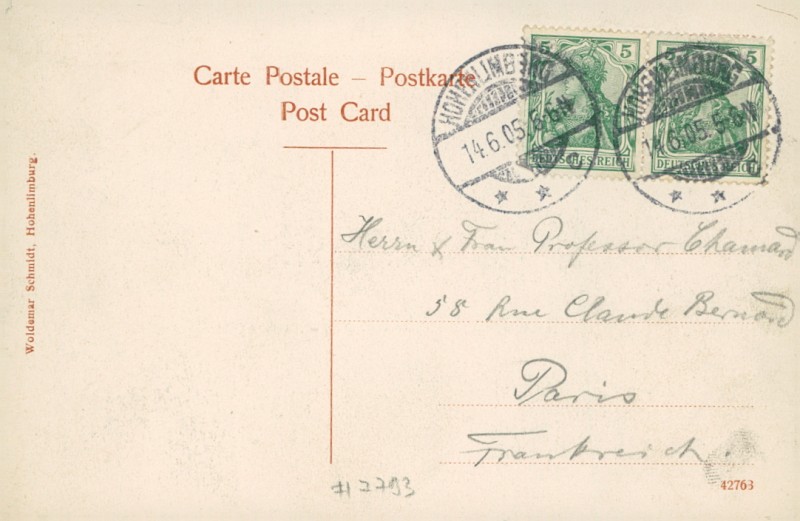 Carte Postale – Postkarte
Post Card
5 5
5
DEUTSCHES REICH
DEUTSCHES REICH
HOHENLIMBURG
14.6.05.5-6N
HOHENLIMBURG
14.6.05.5-6N
Woldemar Schmidt, Hohenlimburg.
Herrn & Frau Professor Chamard
58 Rue Claude Bernard
Paris
Frankreich.
42763